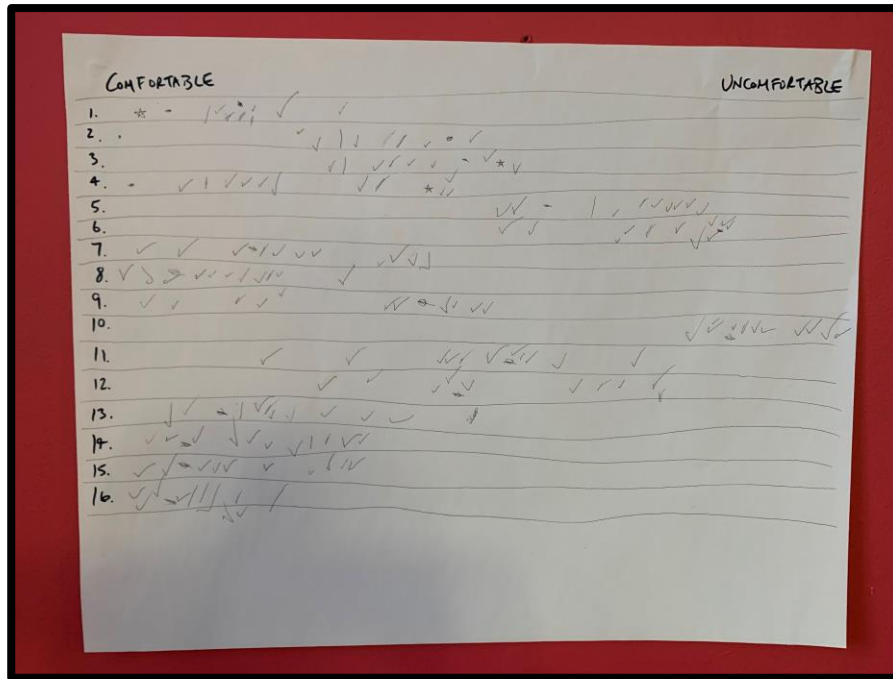 COMFORTABLE UNCOMFORTABLE
1.
2.
3.
4.
5.
6.
7.
8.
9.
10.
11.
12.
13.
14.
15.
16.